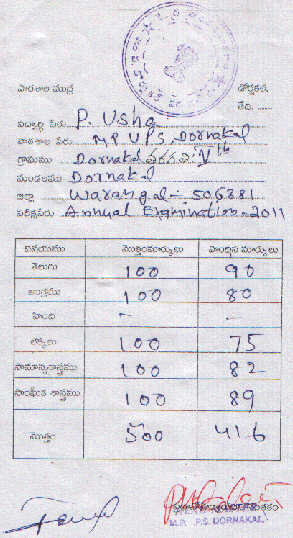 పాఠశాల ముద్ర డోర్నకల్,
తేది
విద్యార్థి పేరు P. Usha
పాఠశాల పేరు M P U P S, Dornakal
గ్రామము Dornakal తరగతి: Vth
మండలము Dornakal
జిల్లా Warangal:- 506381
పరీక్షపేరు Annual Examination-2011
విషయము మొత్తంమార్కులు పొందిన మార్కులు
తెలుగు 100 90
ఇంగ్లీషు 100 80
హింది - -
లెక్కలు 100 75
సామాన్యశాస్త్రము 100 82
సాంఘీక శాస్త్రము 100 89
మొత్తం 500 416
M.P. P.S. DORNAKAL